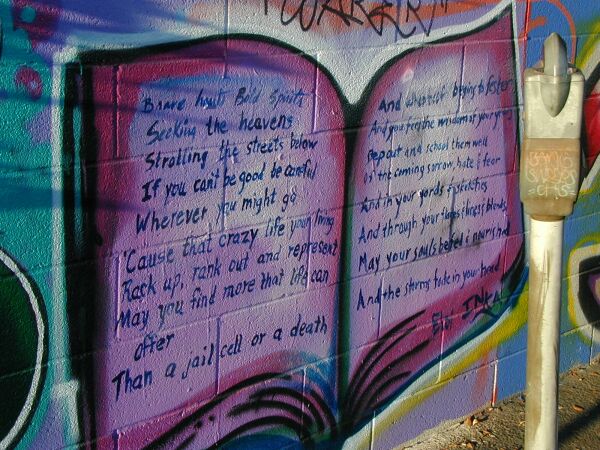 Brave hearts Bold Spirits
Seeking the heavens
Strolling the streets below
If you can't be good be careful
Wherever you might go
'Cause that crazy life your living
Rack up, rank out and represent
May you find more that life can
offer
Than a jail cell or a death
And when self begins to fester
And you feel the wisdom of your years
and school them well
of the coming sorrow, hate & fear
And in your words & sketches
And through your
May your souls be fed & nourished
And the storms fade in your head
INKA